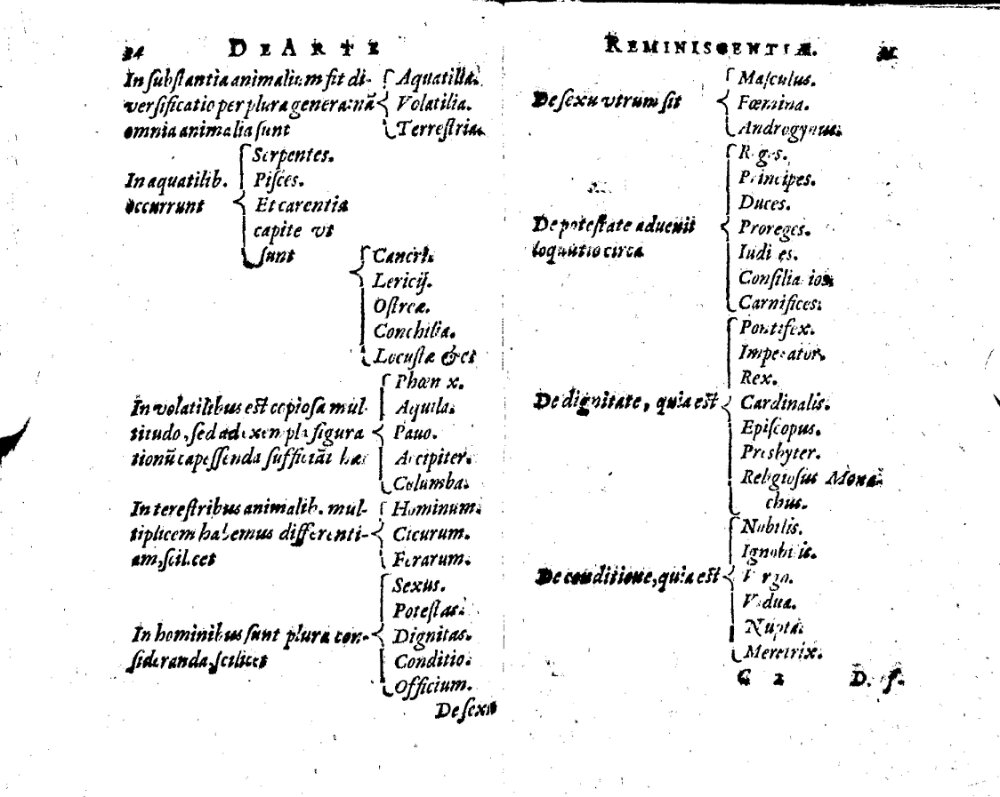 34 DE ARTE
In substantia animalium fit di-
versificatio per plura genera: nã
omnia animalia sunt
Aquatilia.
Volatilia.
Terrestria.
In aquatilib.
occurrunt
Serpentes.
Pisces.
Et carentia
capite vt
sunt
Cancri.
Lericij.
Ostreæ.
Conchilia.
Locustæ &ct
In volatilibus est copiosa mul-
titudo, sed ad exempla figura
tionũ capessenda sufficiãt hæc
Phœnix.
Aquila.
Pauo.
Accipiter.
Columba.
In terestribus animalib. mul-
tiplicem habemus differenti-
am, scilicet
Hominum.
Cicurum.
Ferarum.
In hominibus sunt plura con-
sideranda, scilicet
Sexus.
Potestas.
Dignitas.
Conditio.
Officium.
De sexu
REMINISCENTIÆ.
De sexu vtrum sit
Masculus.
Fœmina.
Androgynus.
De potestate aduenit
loquutio circa
Reges.
Principes.
Duces.
Proreges.
Iudices.
Consiliarios.
Carnifices.
De dignitate, quia est
Pontifex.
Imperator.
Rex.
Cardinalis.
Episcopus.
Presbyter.
Religiosus Mona-
chus.
De conditione, quia est
Nobilis.
Ignobilis.
Virgo.
Vidua.
Nupta.
Meretrix.
C 2 D. f.